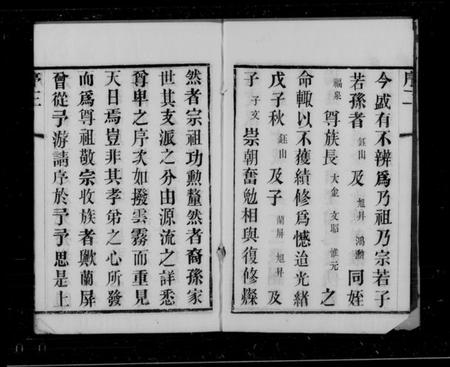 序二
今或有不辨為乃祖乃宗若子
若孫者鈺山及旭昇鴻勳同姪
福泉尊族長大金文郁維元之
命輙以不獲績修為憾迨光緒
戊子秋鈺山及子蘭屏旭昇及
子子文崇朝奮勉相與復修燦
然者宗祖功勲釐然者裔孫家
世其支派之分由源流之詳悉
尊卑之序次如撥雲霧而重見
天日焉豈非其孝弟之心所發
而為尊祖敬宗收族者歟蘭屏
曾從予游請序於予予思是上
序三